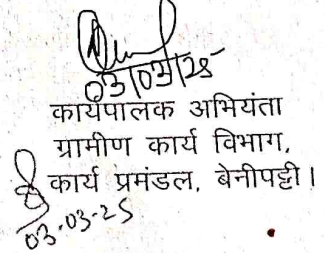 03/03/25
कार्यपालक अभियंता
ग्रामीण कार्य विभाग,
कार्य प्रमंडल, बेनीपट्टी।
03.03.25